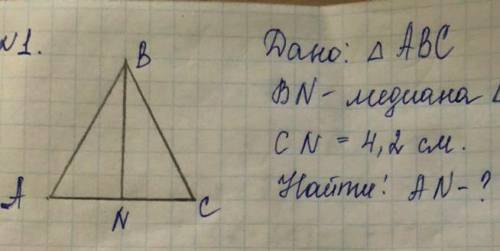 N1.
B
A
N
C
Дано: △ ABC
BN - медиана △
CN = 4,2 см.
Найти: AN - ?